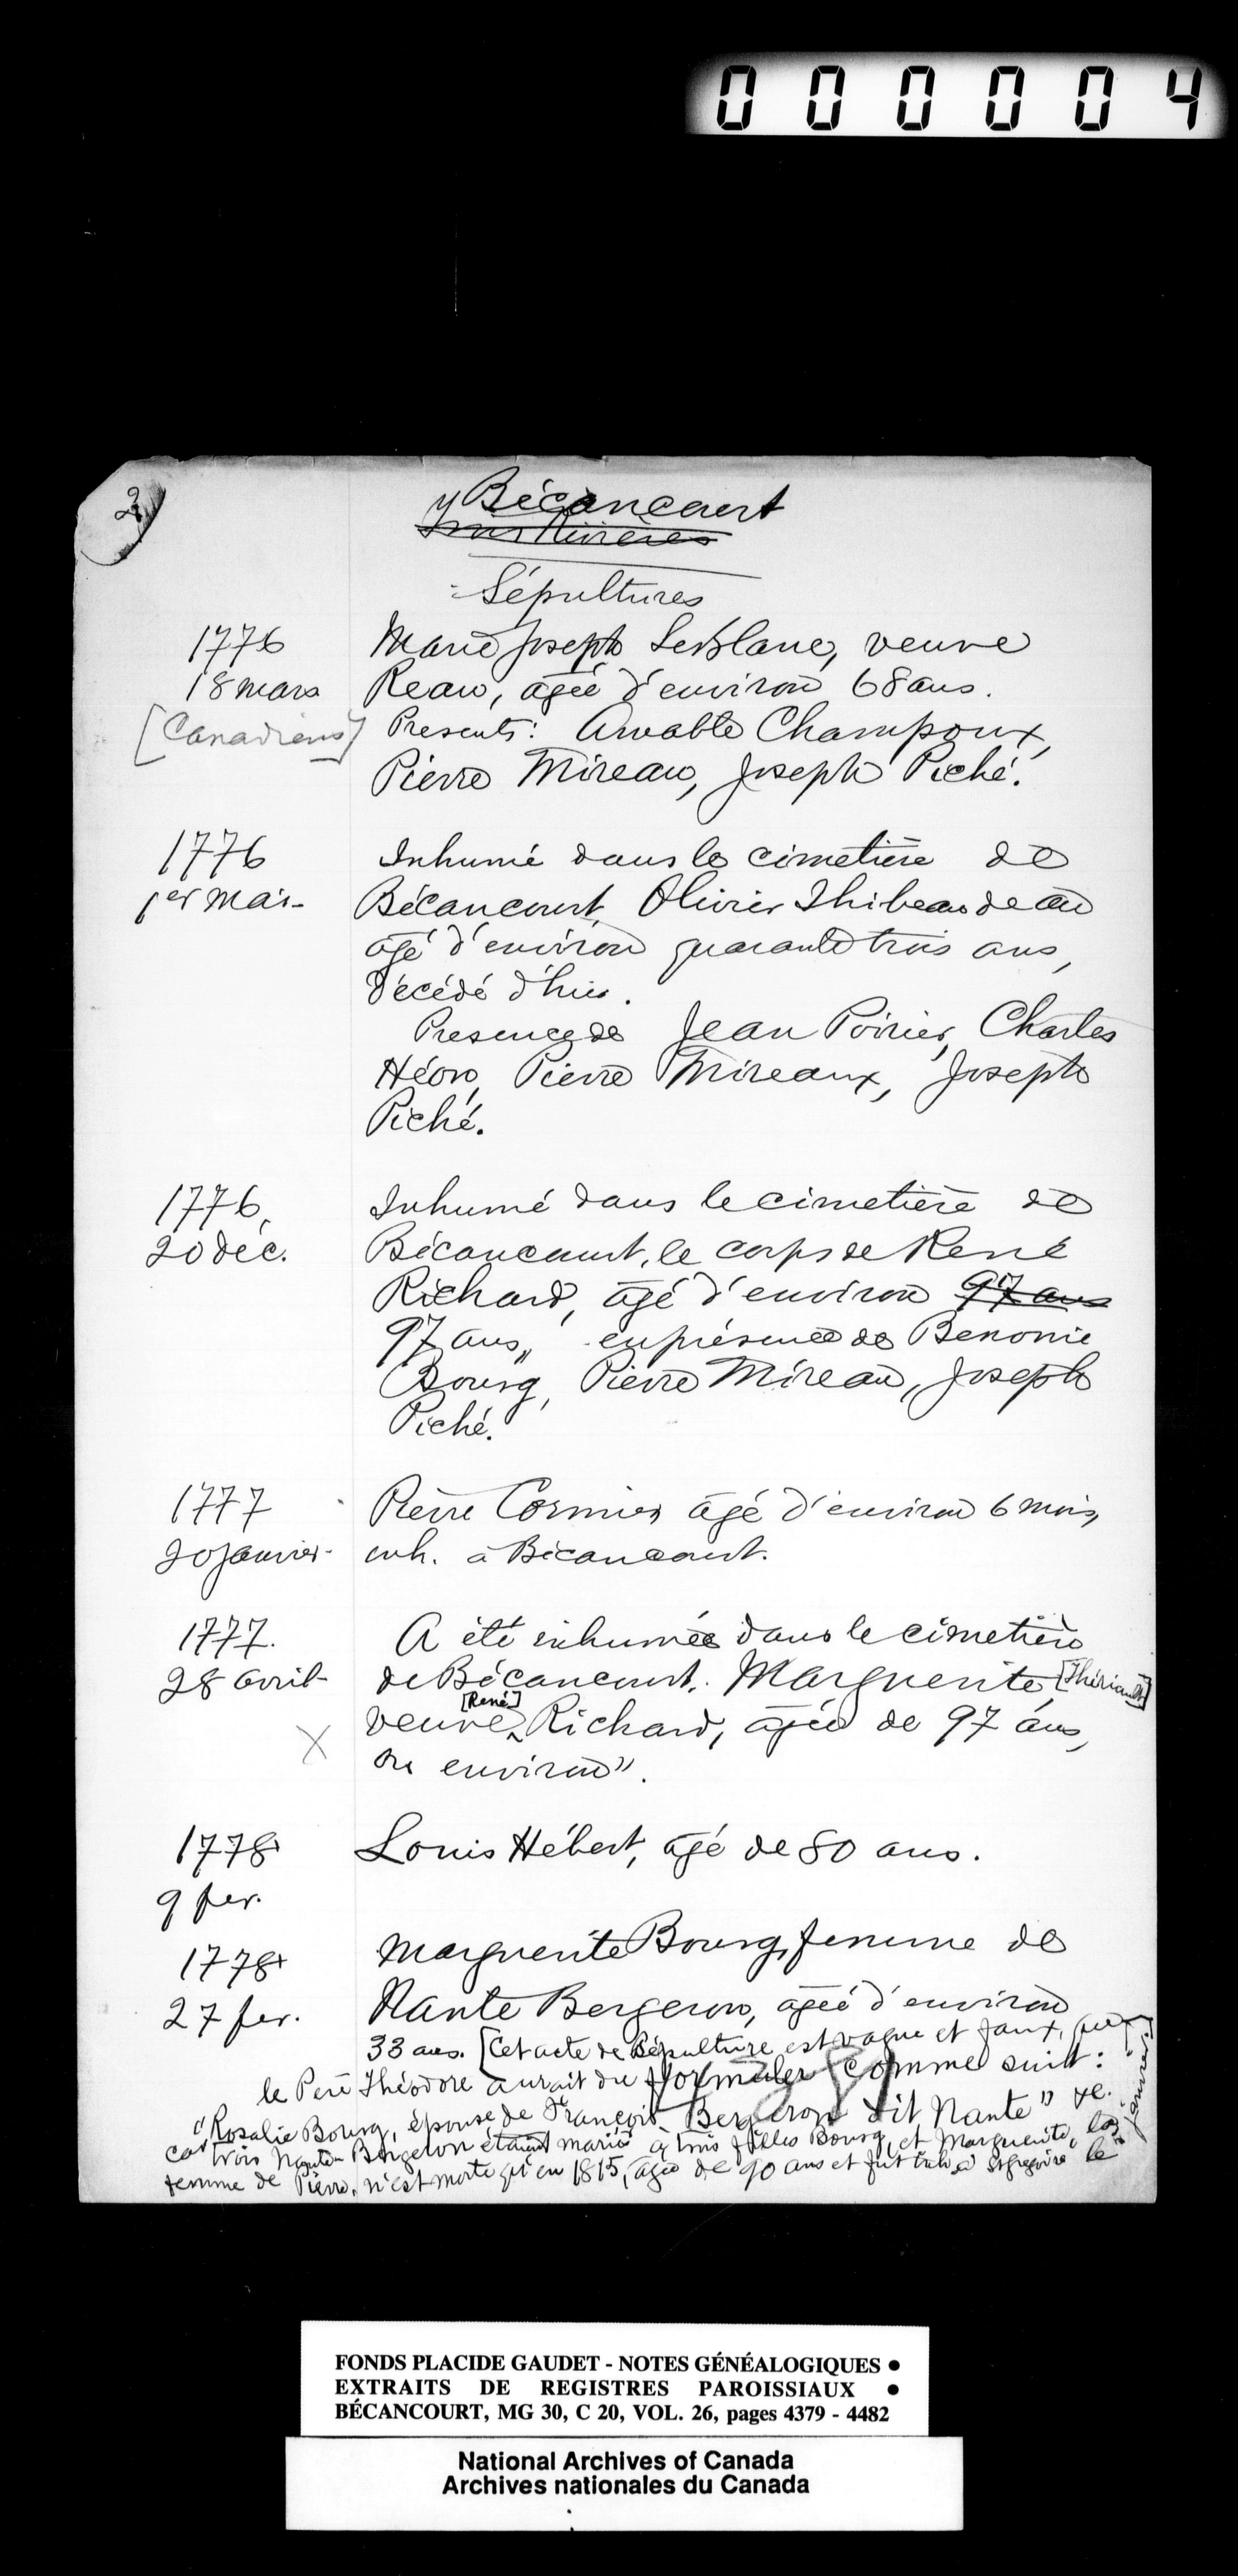 000004
2
Bécancourt
Trois Rivières
Sépultures
1776
18 mars
[Canadiens]
Marie Joseph LeBlanc, veuve
Reau, agée d'environ 68 ans.
Presents: Amable Champoux,
Pierre Mireau, Joseph Piché.
1776
1er Mai-
Inhumé dans le cimetière de
Bécancourt Olivier Thibeaudeau
agé d'environ quarante trois ans,
décédé d'hier.
Presence de Jean Poirier, Charles
Héon, Pierre Mireaux, Joseph
Piché.
1776,
20 déc.
Inhumé dans le cimetière de
Bécancourt, le corps de René
Richard, agé d'environ 97 ans
97 ans,, en présence de Benonie
Bourg, Pierre Mireau, Joseph
Piché.
1777
20 janvier-
Pierre Cormier agé d'environ 6 mois,
inh. à Bécancourt.
1777.
28 avril-
X
A été inhumée dans le cimetière
de Bécancourt. Marguerite [Thériault]
veuve [René] Richard, agée de 97 ans,
ou environ".
1778
9 fev.
Louis Hébert, agé de 80 ans.
1778
27 fev.
Marguerite Bourg, femme de
Nante Bergeron, agée d'environ
33 ans. [Cet acte de Sépulture est vague et faux, que
le Père Théodore aurait du formuler comme suit:
"Rosalie Bourg, épouse de François Bergeron dit Nante" &c.
car trois Nante Bergeron étaient mariés à trois filles Bourg, et Marguerite, la
femme de Pierre, n'est morte qu'en 1815, agée de 90 ans et fut inh. à St Grégoire le
janvier]
FONDS PLACIDE GAUDET - NOTES GÉNÉALOGIQUES •
EXTRAITS DE REGISTRES PAROISSIAUX •
BÉCANCOURT, MG 30, C 20, VOL. 26, pages 4379 - 4482
National Archives of Canada
Archives nationales du Canada